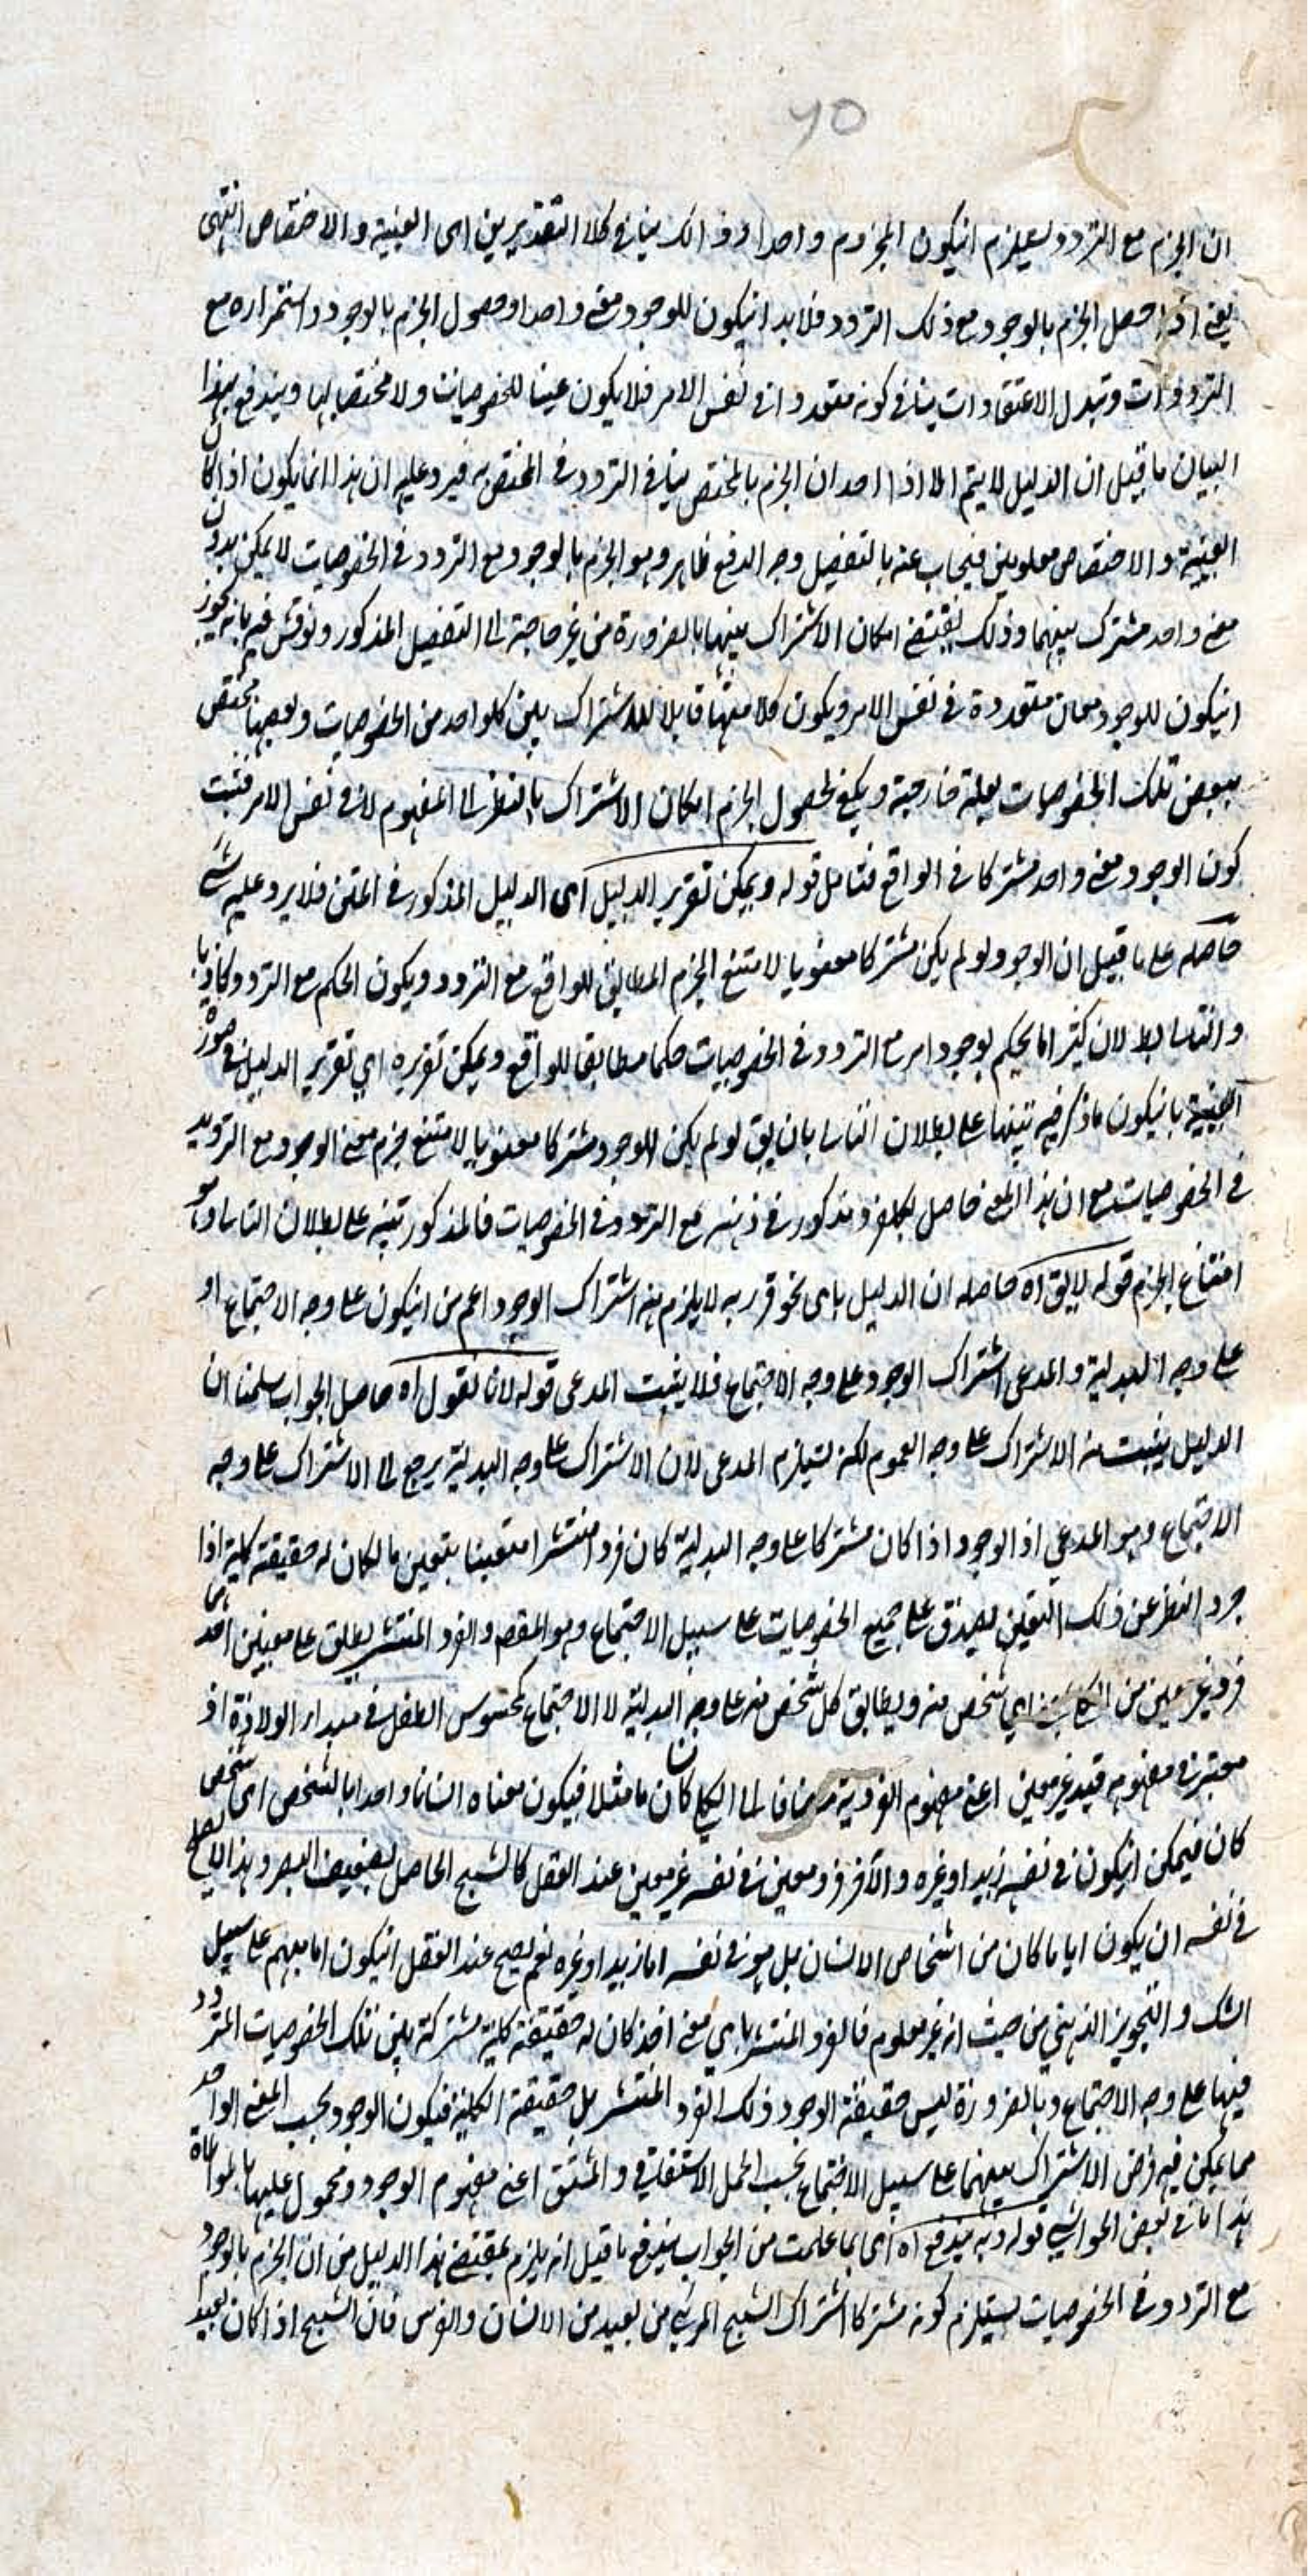 ٦٥
ان الجزم مع التردد يستلزم انيكون المجزوم واحدا وذالك ينافى كلا التقديرين اى العينية والاختصاص انتهى
يعنى اذا حصل الجزم بالوجود مع ذلك التردد فلا بد انيكون للوجود معنى واحدا وحصول الجزم بالوجود واستمراره مع
الترددات وتبدل الاعتقادات ينافى كونه متعددا فى نفس الامر فلا يكون عينا للخصوصيات ولا مختصا بها ويندفع بهذا
البيان ما قيل ان الدليل لا يتم الا اذا اخذ ان الجزم بالمختص ينافى التردد فى المختص به فيرد عليه ان هذا انما يكون اذا كان
العينية والاختصاص معلومين فيجاب عنه بالتفصيل وجه الدفع ظاهر وهو الجزم بالوجود مع التردد فى الخصوصيات لا يمكن بدون
معنى واحد مشترك بينهما وذلك يقتضى امكان الاشتراك بينها بالضرورة من غير حاجة الى التفصيل المذكور ونوقش فيه بانه يجوز
انيكون للوجود معان متعددة فى نفس الامر ويكون كلا منها قابلا للاشتراك بين كلواحد من الخصوصيات وبعضها مختص
ببعض تلك الخصوصيات بعلة خارجية ويكفى لحصول الجزم امكان الاشتراك بالنظر الى المفهوم لا فى نفس الامر فثبت
كون الوجود معنى واحد مشتركا فى الواقع فتامل قوله ويمكن تقرير الدليل اى الدليل المذكور فى المتن فلا يرد عليه شئ
حاصله على ما قيل ان الوجود لو لم يكن مشتركا معنويا لامتنع الجزم المطابق للواقع مع التردد ويكون الحكم مع التردد كاذبا
والتالى بط لان كثيرا ما يحكم بوجود امر مع التردد فى الخصوصيات حكما مطابقا للواقع ويمكن تقريره اي تقرير الدليل فى صورة
العينية بانيكون ما ذكر فيه تنبيها على بطلان التالى بان يق لو لم يكن للوجود مشتركا معنويا لامتنع جزم معنى الوجود مع الترديد
فى الخصوصيات مع ان هذا المعنى حاصل لكل فرد مذكور فى ذهنه مع التردد فى الخصوصيات فالمذكور تنبيه على بطلان التالى وهو
امتناع الجزم قوله لا يق اه حاصله ان الدليل باى نحو قرر به لا يلزم منه اشتراك الوجود اعم من انيكون على وجه الاجتماع او
على وجه البدلية والمدعى اشتراك الوجود على وجه الاجتماع فلا يثبت المدعى قوله لانا نقول اه حاصل الجواب سلمنا ان
الدليل يثبت منه الاشتراك على وجه العموم لكنه يستلزم المدعى لان الاشتراك على وجه البدلية يرجع الى الاشتراك على وجه
الاجتماع وهو المدعي اذ الوجود اذا كان مشتركا على وجه البدلية كان فردا منتشرا متعينا بتعين ما لكان له حقيقة كلية اذا
جرد النظر عن ذلك التعين يصدق على جميع الخصوصيات على سبيل الاجتماع وهو المقصد والفرد المنتشر يطلق على معنيين احدهما
فرد غير معين من اي شخص منه ويطابق كل شخص منه على وجه البدلية لا الاجتماع كمحسوس الطفل فى مبداء الولادة اذ
معتبر فى مفهومه قيد غير معين اعنى مفهوم الفردية مضافا الى الكلي كانسان ما مثلا فيكون معناه انسانا واحدا بالشخص اى شخص
كان فيمكن انيكون فى نفسه زيدا وغيره والآخر فرد معين فى نفسه غير معين عند العقل كالشبح الحاصل لضعيف البصر وهذا لا يصلح
فى نفسه ان يكون ايا ما كان من اشخاص الانسان بل هو فى نفسه اما زيد او غيره نعم يصح عند العقل انيكون اما مبهم على سبيل
الشك والتجويز الذهني من حيث انه غير معلوم فالفرد المنتشر باي معنى اخذ كان له حقيقة كلية مشتركة بين تلك الخصوصيات المتردد
فيها على وجه الاجتماع وبالضرورة ليس حقيقة الوجود ذلك الفرد المنتشر بل حقيقة الكلية فيكون الوجود بحسب المعنى الواحد
مما يمكن فيه فرض الاشتراك بينهما على سبيل الاجتماع بحسب الحمل الاشتقاقي والمشتق اعنى مفهوم الوجود ومحمول عليها بالمواطاة
هذا ما فى بعض الحواشي قوله وبه يندفع اه اى بما علمت من الجواب يندفع ما قيل انه يلزم بمقتضى هذا الدليل من ان الجزم بالوجود
مع التردد فى الخصوصيات يستلزم كونه مشتركا اشتراك الشبح المرئي من بعيد من الانسان والفرس فان الشبح اذا كان بعيد